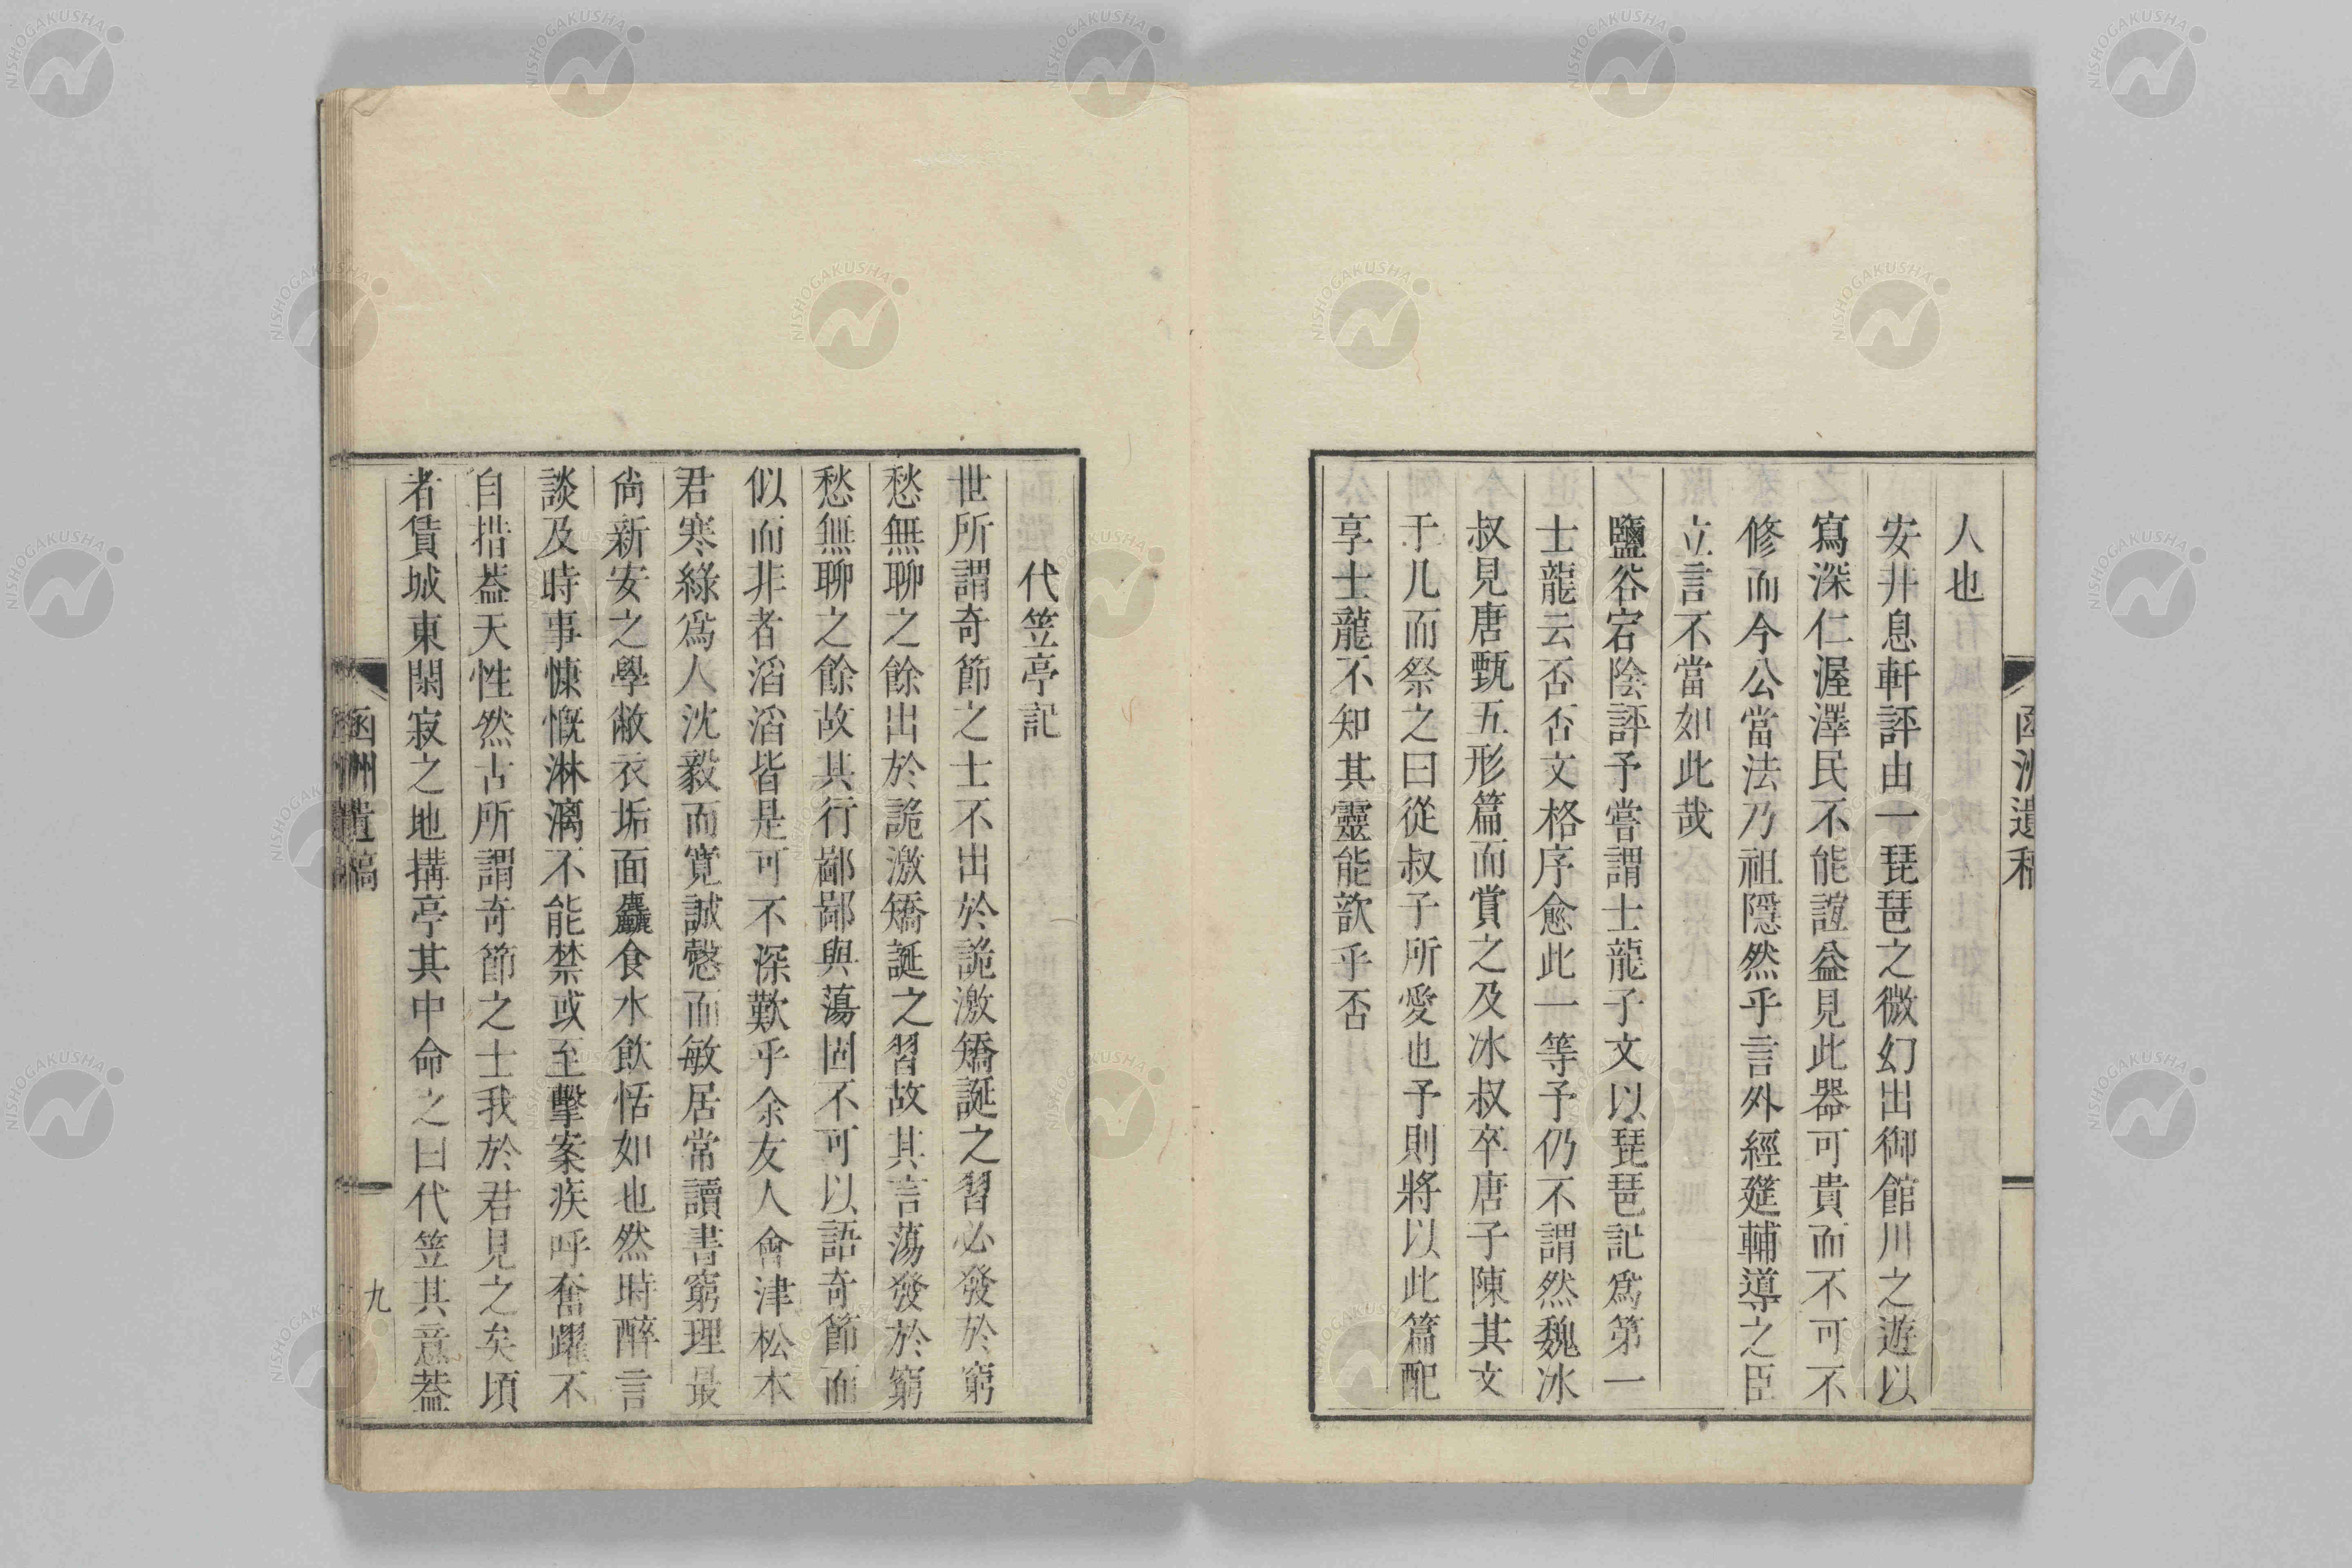 函洲遺稿
人也
安井息軒評由一琵琶之微幻出御館川之遊以
寫深仁渥澤民不能諠益見此器可貴而不可不
修而今公當法乃祖隱然乎言外經筵輔導之臣
立言不當如此哉
鹽谷宕陰評予嘗謂士龍子文以琵琶記爲第一
士龍云否否文格序愈此一等予仍不謂然魏冰
叔見唐甄五形篇而賞之及冰叔卒唐子陳其文
于几而祭之曰從叔子所愛也予則將以此篇配
享士龍不知其靈能歆乎否
代笠亭記
世所謂奇節之士不出於詭激矯誕之習必發於窮
愁無聊之餘出於詭激矯誕之習故其言蕩發於窮
愁無聊之餘故其行鄙鄙與蕩固不可以語奇節而
似而非者滔滔皆是可不深歎乎余友人會津松本
君寒綠爲人沈毅而寬誠愨而敏居常讀書窮理最
尙新安之學敝衣垢面麤食水飲恬如也然時醉言
談及時事慷慨淋漓不能禁或至擊案疾呼奮躍不
自措葢天性然古所謂奇節之士我於君見之矣頃
者賃城東閑寂之地搆亭其中命之曰代笠其意葢
函洲遺稿
九
NISHOGAKUSHA